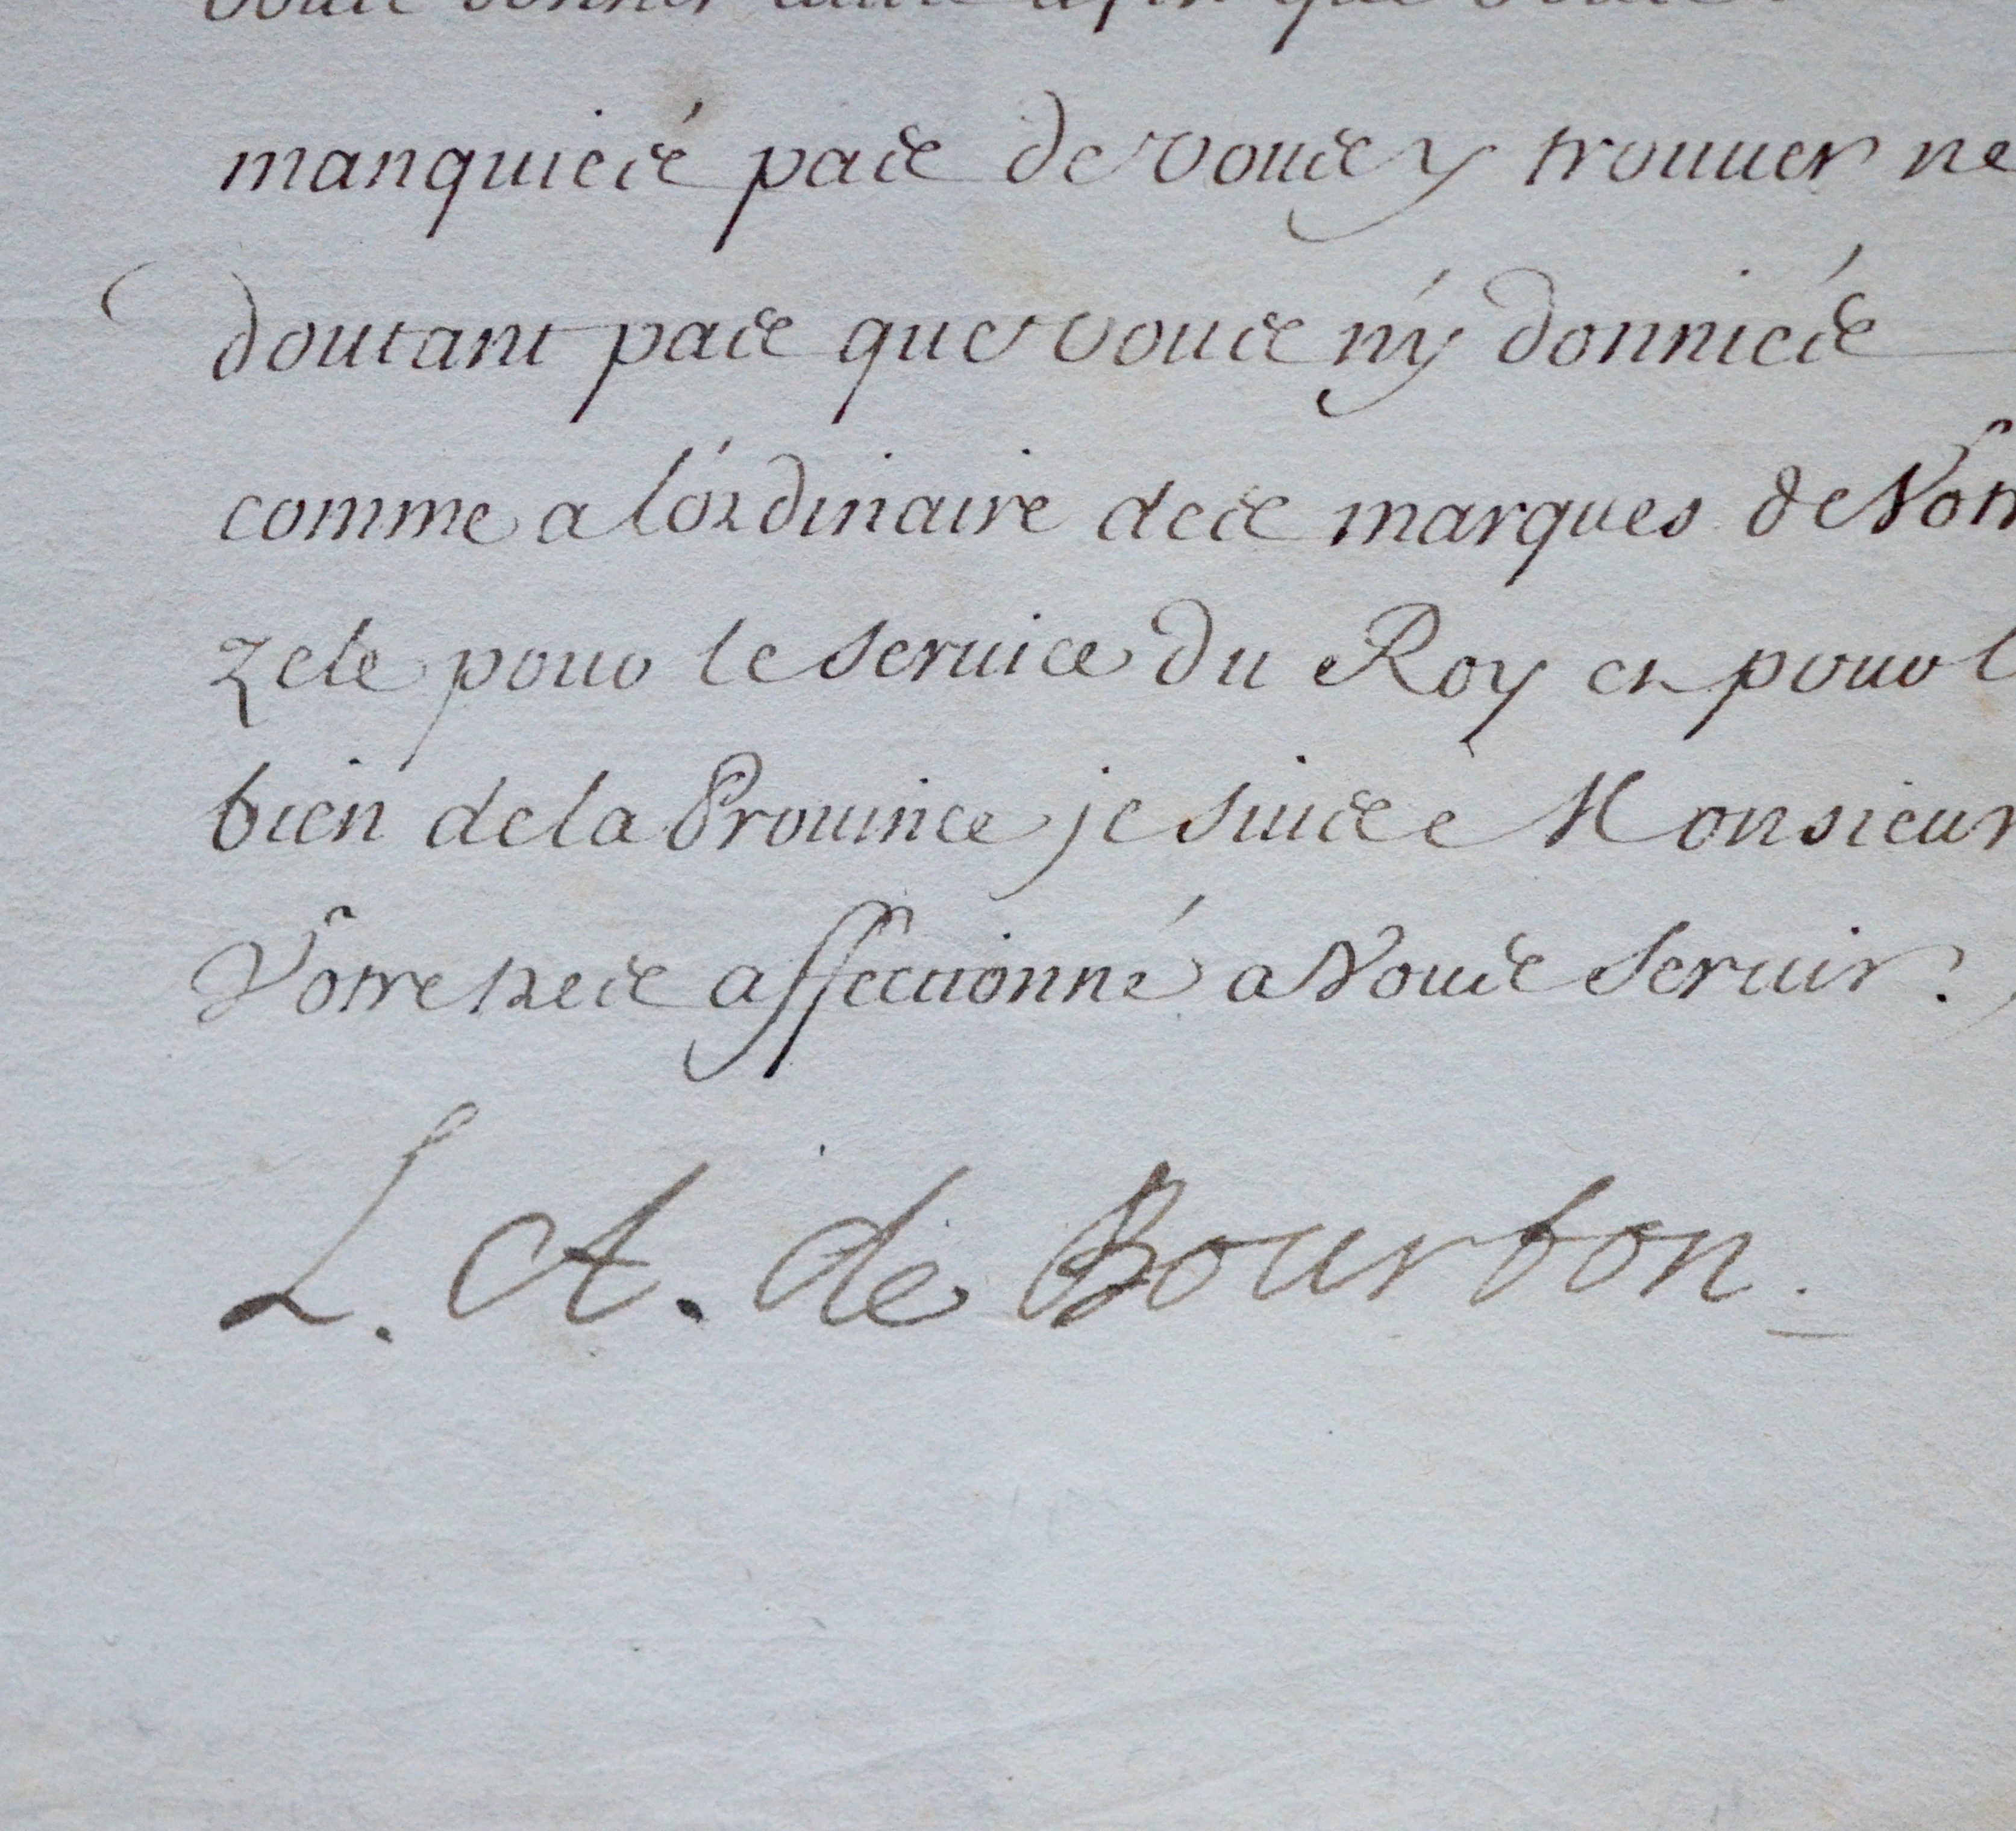 vous donner auis afin que vous
manquiés pas de vous y trouuer ne
doutant pas que vous n'y donniés
comme a l'ordinaire des marques de Vot
zele pour le seruice du Roy et pour l
bien de la Prouince je suis Monsieur
Vôtre tres affectionné a Vous seruir.
L. A. de Bourbon.